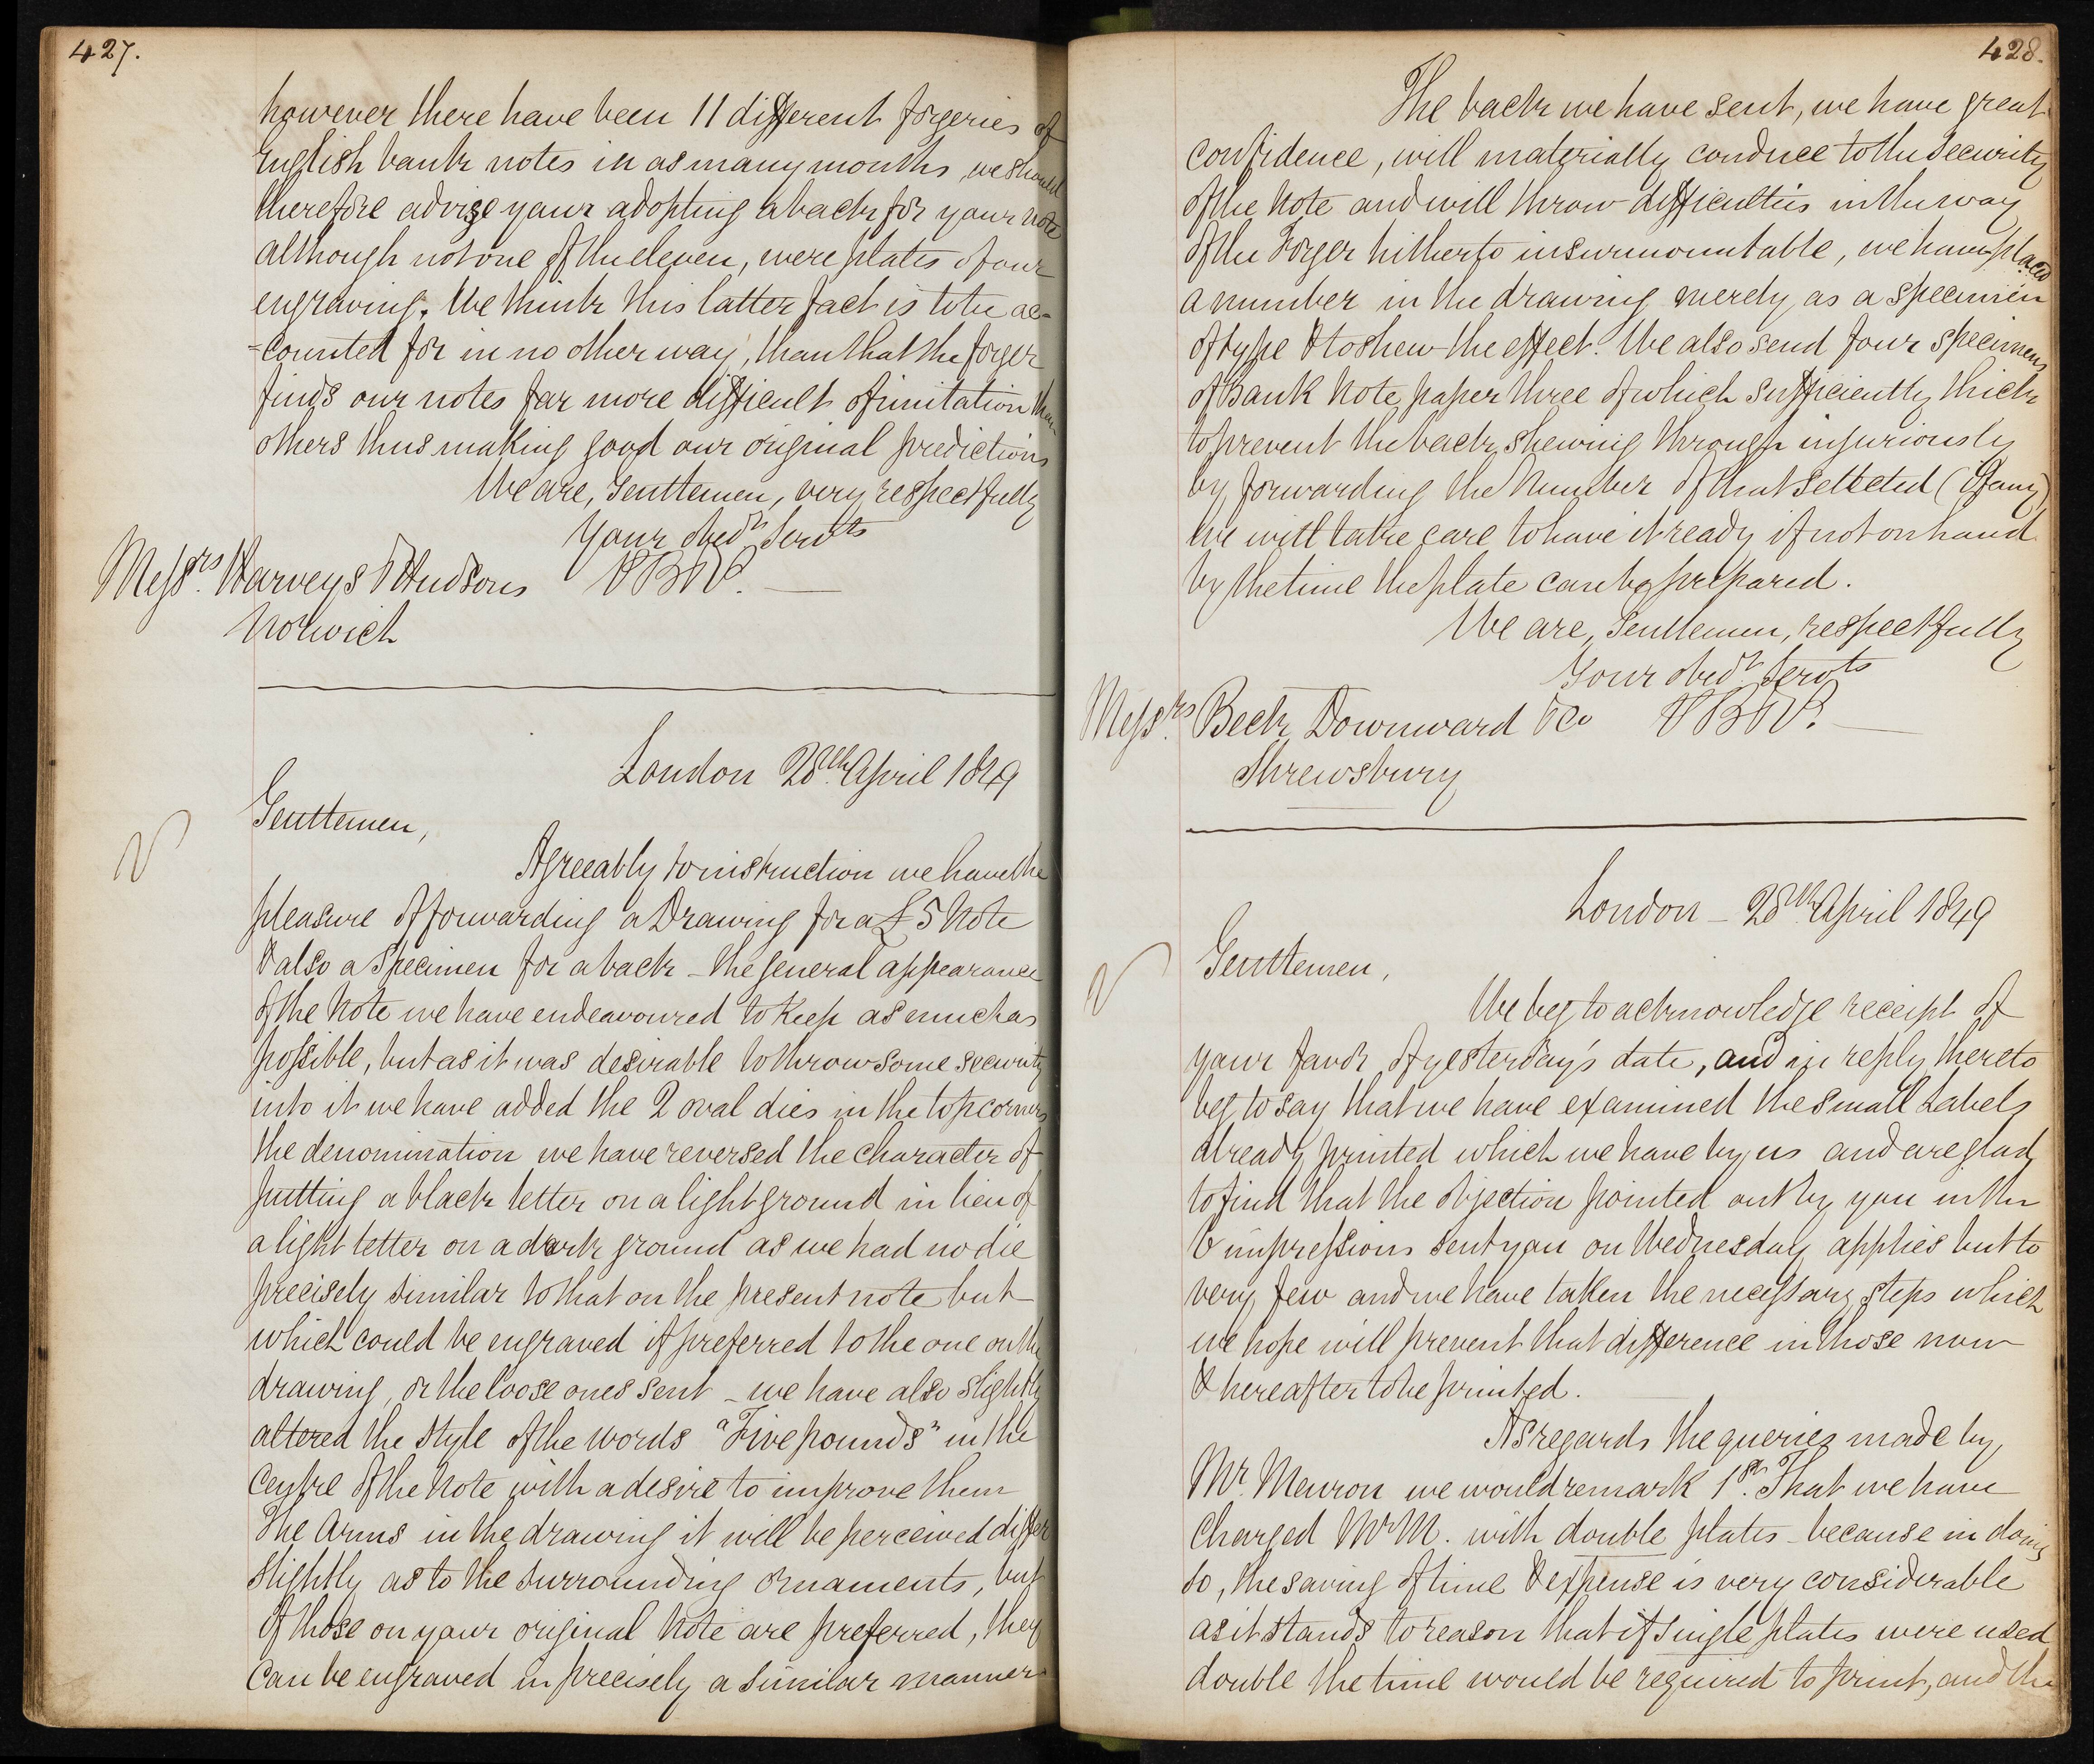 427.
however there have been 11 different forgeries of
English bank notes in as many months, we should
therefore advise your adopting a back for your note
although not one of the eleven, were plates of our
engraving. We think this latter fact is to be ac-
-counted for in no other way, than that the forger
finds our notes far more difficult of imitation than
others thus making good our original predictions
We are, Gentlemen, very respectfully
Your obedt. Servts
Messrs. Harveys & Hudsons PB&P.
Norwich
London 28th. April 1849
Gentlemen,
Agreeably to instruction we have the
pleasure of forwarding a Drawing for a £5 Note
& also a Specimen for a back – the general appearance
of the Note we have endeavoured to keep as much as
possible, but as it was desirable to throw some security
into it we have added the 2 oval dies in the top corners
the denomination we have reversed the character of
putting a black letter on a light ground in lieu of
a light letter on a dark ground as we had no die
precisely similar to that on the present note but
which could be engraved if preferred to the one on the
drawing, or the loose ones sent – we have also slightly
altered the style of the words "Five pounds" in the
Centre of the Note with a desire to improve them
The Arms in the drawing it will be perceived differ
slightly as to the surrounding ornaments, but
if those on your original Note are preferred, they
Can be engraved in precisely a similar manner
428.
The back we have sent, we have great
confidence, will materially conduce to the security
of the Note and will throw difficulties in the way
of the Forger hitherto insurmountable, we have placed
a number in the drawing merely as a specimen
of type & to shew the effect. We also send four specimens
of Bank Note paper three of which sufficiently thick
to prevent the back shewing through injuriously
by forwarding the Number of that selected (if any)
we will take care to have it ready if not on hand
by the time the plate can be prepared.
We are, Gentlemen, respectfully
Your obedt. Servts
Messrs. Beck Downward & Co PB&P.
Shrewsbury
London – 28th. April 1849
Gentlemen,
We beg to acknowledge receipt of
your favor of yesterday's date, and in reply thereto
beg to say that we have examined the small Labels
already printed which we have by us and are glad
to find that the objection pointed out by you in the
6 impressions sent you on Wednesday applies but to
very few and we have taken the necessary steps which
we hope will prevent that difference in those now
& hereafter to be printed.
As regards the queries made by
Mr. Meuron we would remark 1st. That we have
Charged Mr M. with double plates – because in doing
so, the saving of time & expense is very considerable
as it stands to reason that if single plates were used
double the time would be required to print, and the